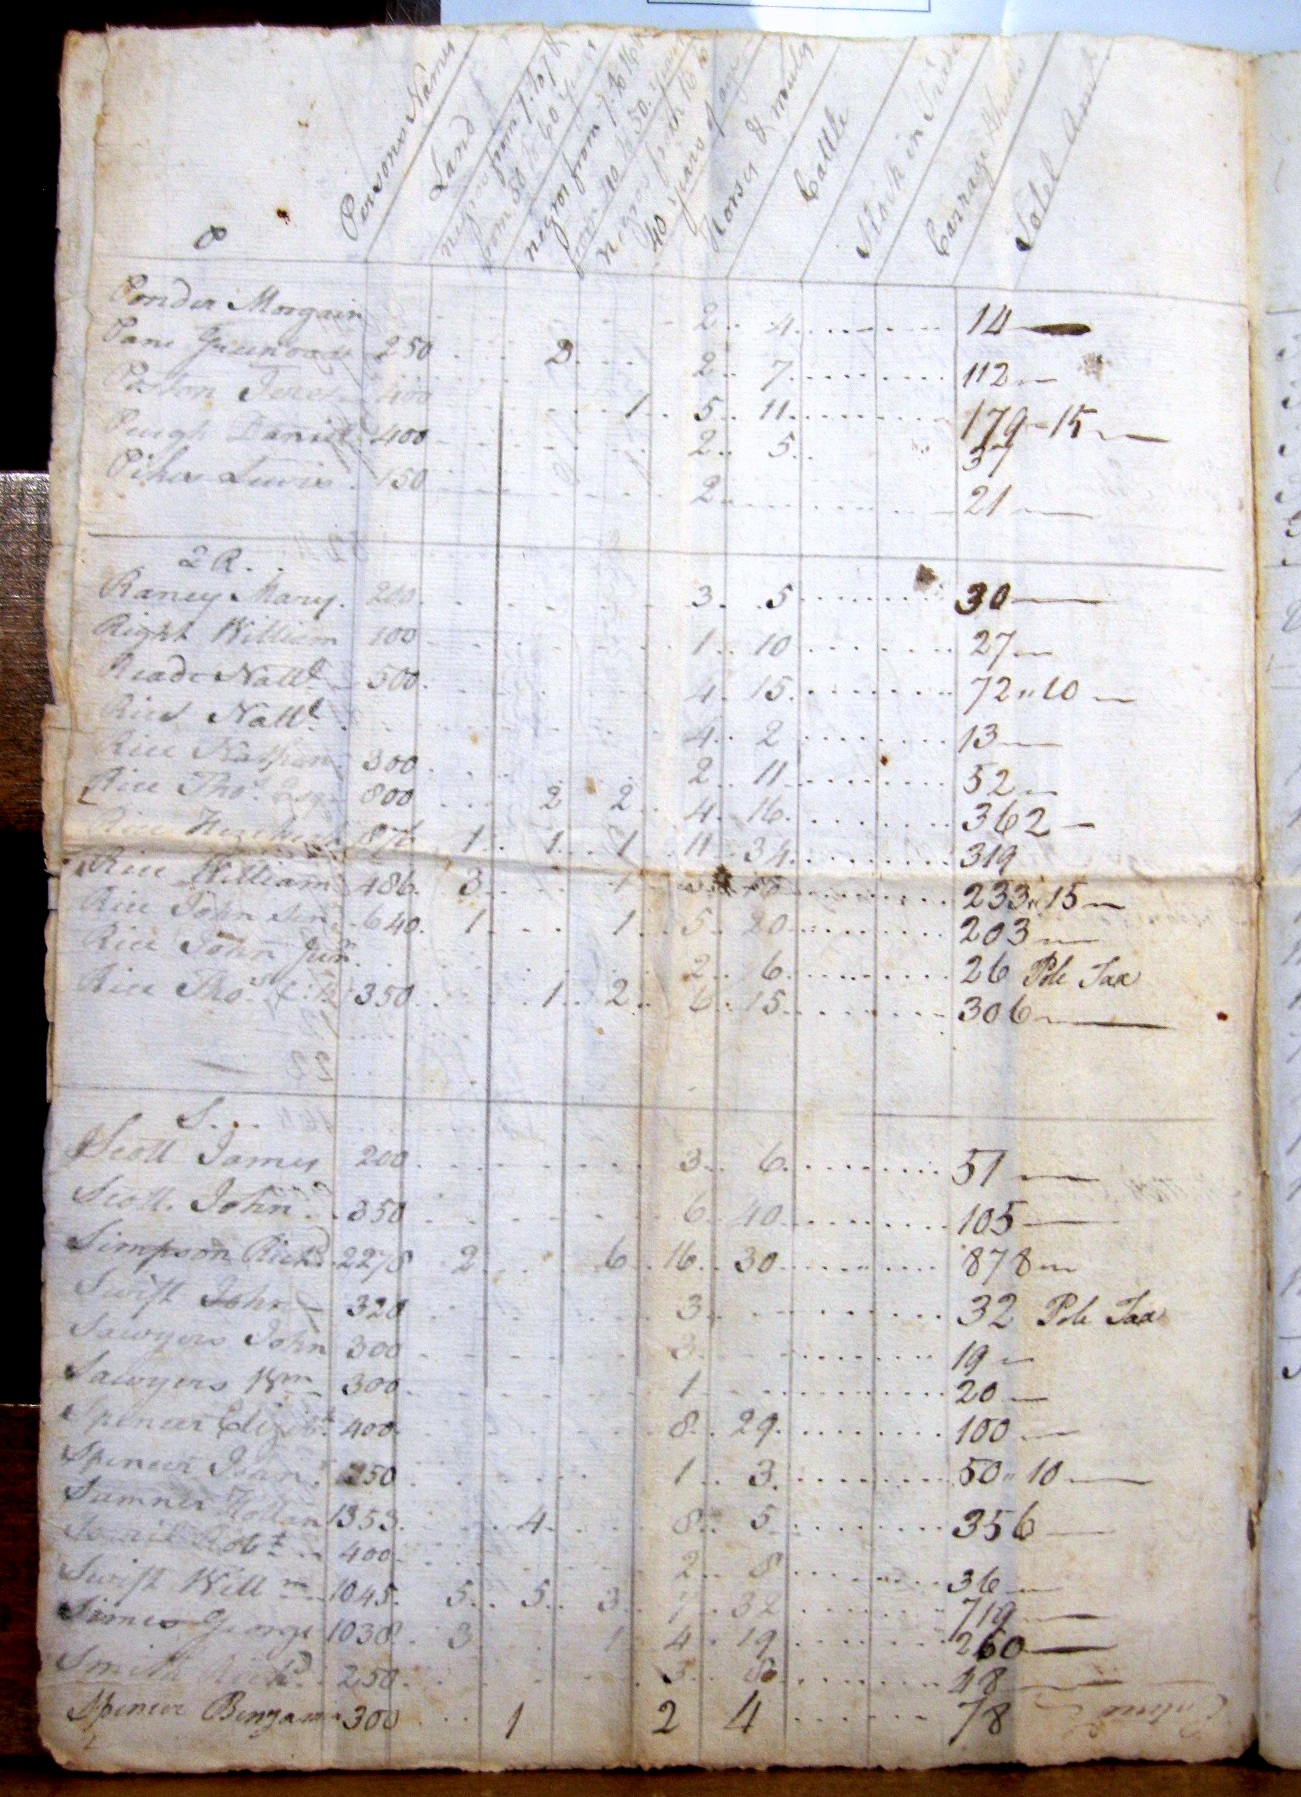 Persons Names
Land
negros from 1. to 7 &
from 50 to 60 years
negros from 7. to 16
from 40 to 50. years
negros from 16 to
40 years of age
Horses & mules
Cattle
Stock in Trade
Carriage Wheels
Total Amt
P
Ponder Morgain 2 4 14
Pane Greenwade 250 2 2 7 112
400 1 5 11 179-15
Pugh Daniel 400 2 5 37
Piker Lewis 150 2 21
2 R.
Raney Mary. 200 3 5 30
Right William 100 1 10 27
Reade Natt 500 4 15 72 " 10
Rice Natt 4 2 13
Rice Nathan 300 2 11 52
Rice Thos. 800 2 2 4 16 362
Rice Hezekiah 876 1 1 1 11 34 319
Rice William 486 3 1 233 " 15
Rice John Senr 640 1 1 5 20 203
Rice John Junr 2 6 26 Pole Tax
Rice Thos. 350 1 2 6 15 306
S
Scott James 200 3 6 51
Scott John 350 6 40 105
Simpson Richd 2278 2 6 16 30 878
Swift John 320 3 32 Pole Tax
Sawyers John 300 3 19
Sawyers Wm 300 1 20
Spencer Elizabh 400 8 29 100
Spencer John 350 1 3 50 " 10
Sumner Hollan 1353 4 8 5 356
Robt 400 2 8 36
Swift Willm 1045 5 5 3 7 32 719
Simes George 1038 3 1 4 19 260
Smith Richd 250 3 48
Spencer Benjamin 300 1 2 4 78